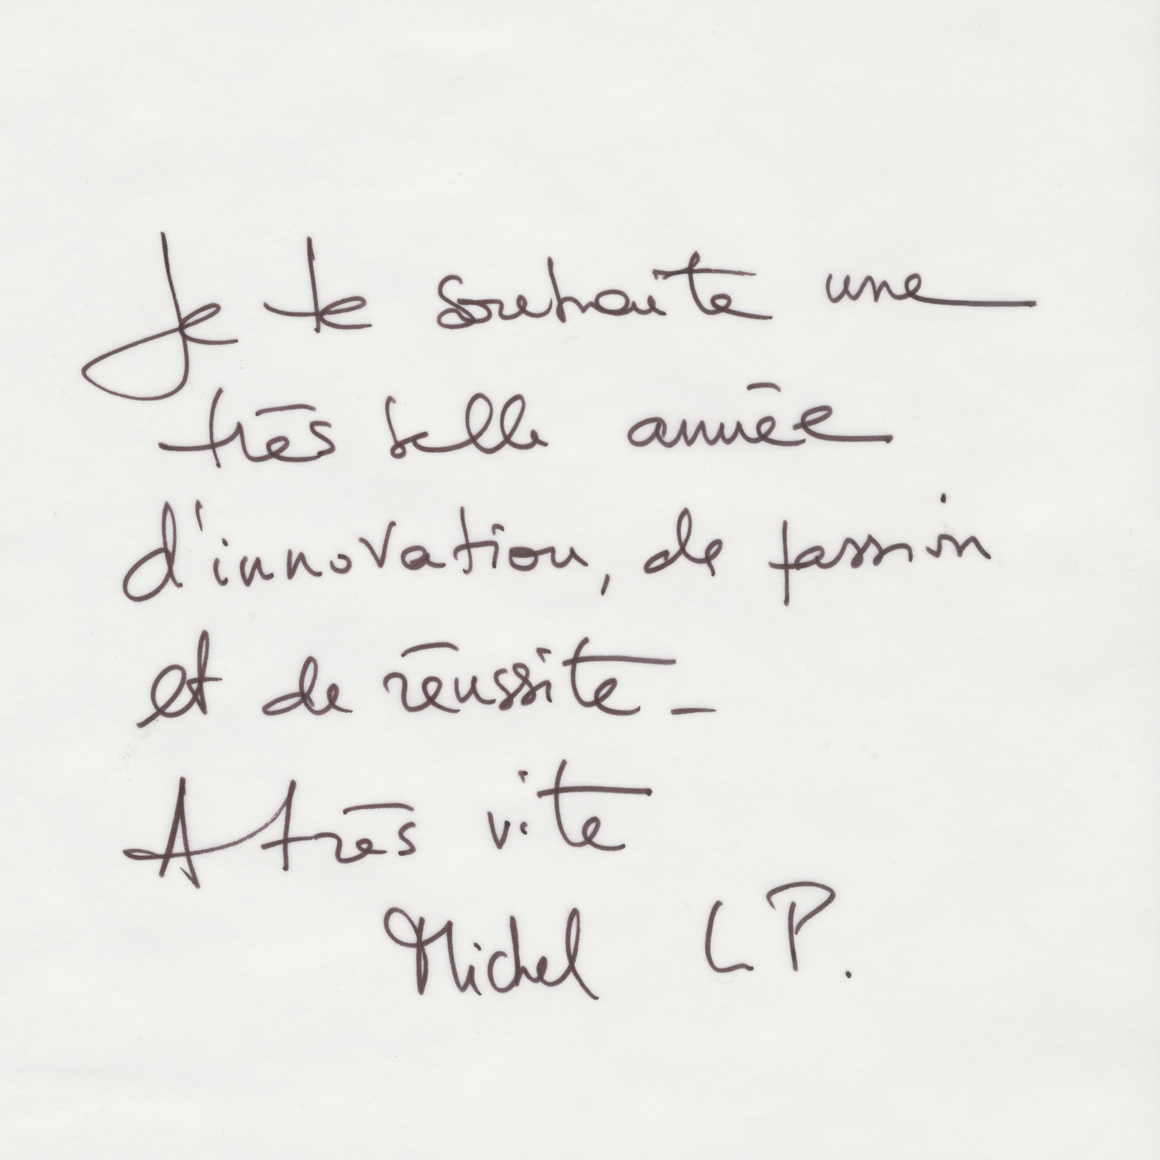 Je te souhaite une
très belle année
d'innovation, de passion
et de réussite -
A très vite
Michel LP.